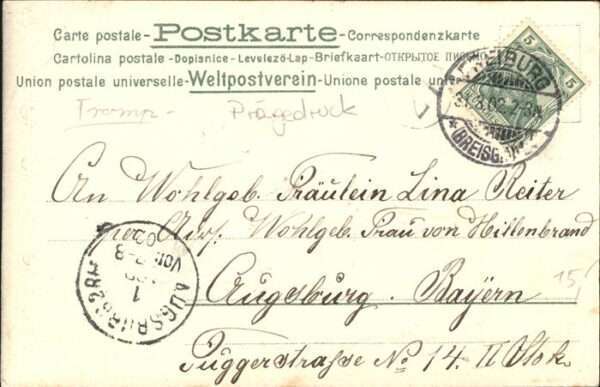 Carte postale - Postkarte - Correspondenzkarte
Cartolina postale - Dopisnice - Levelező-Lap - Briefkaart - ОТКРЫТОЕ
Union postale universelle - Weltpostverein - Unione postale
5 5
FREIBURG
31.3.02.
* BREISGAU
Tromp - Prägedruck
An Wohlgeb. Fräulein Lina Reiter
Adr. Wohlgeb. Frau von Hillenbrand
Augsburg. Bayern
15,-
Fuggerstraße No 14. II Stok.
AUGSBURG 2
1
Vor. 7-8
02